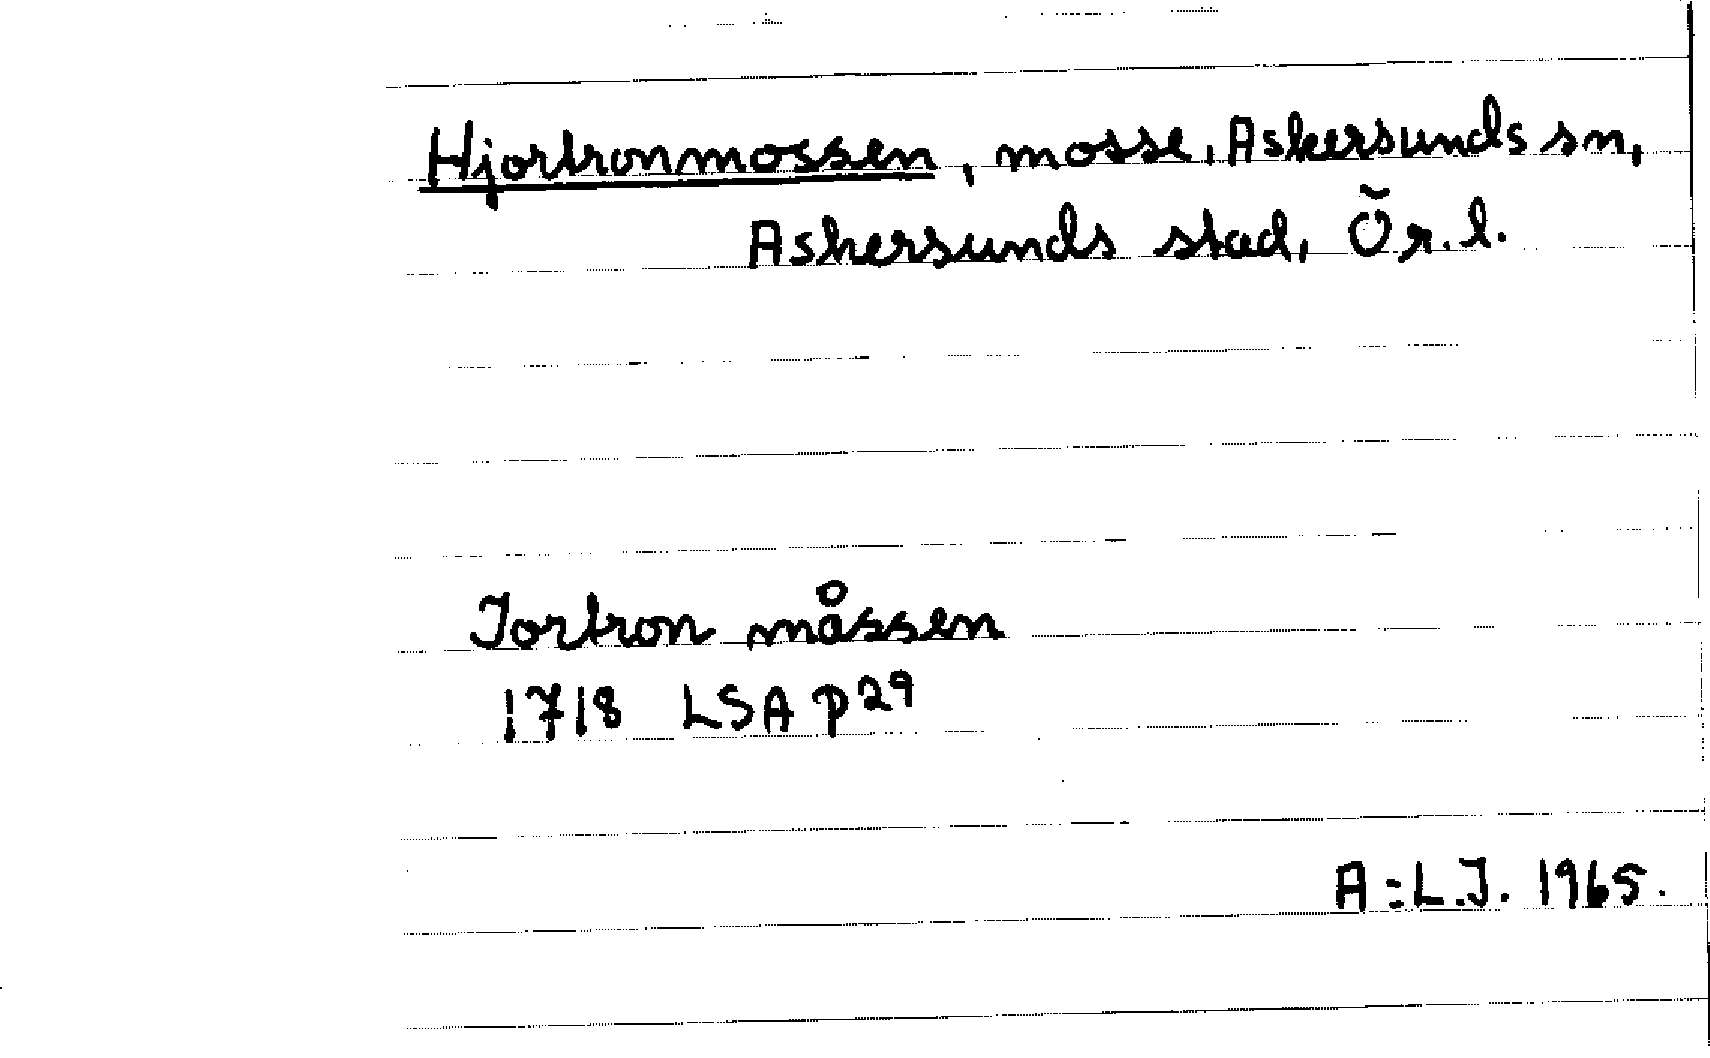 Hjortronmossen, mosse, Askersunds sn,
Askersunds stad, Ör. l.
Jortron måssen
1718 LSA P29
A:L.J. 1965.